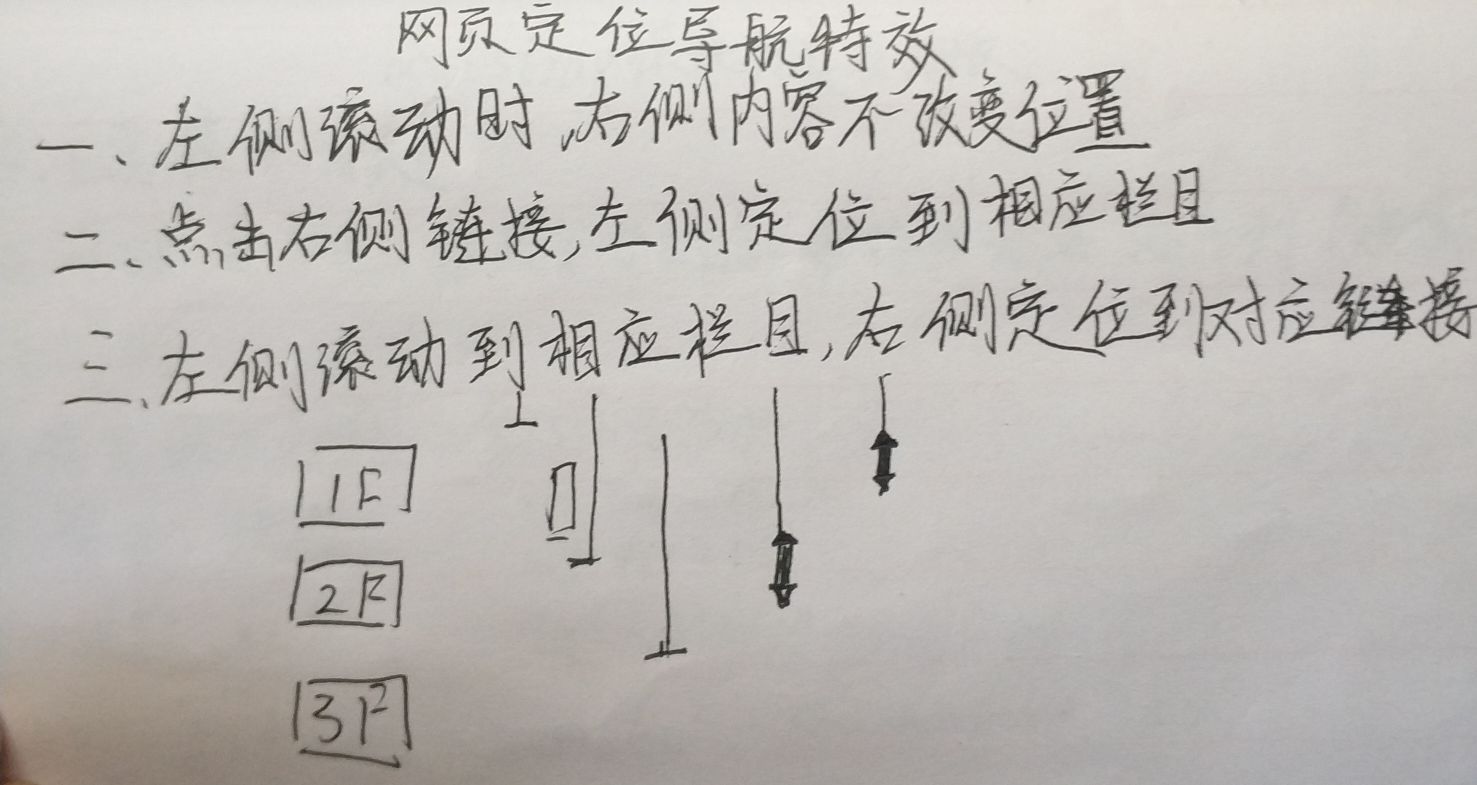 网页定位导航特效
一、左侧滚动时,右侧内容不改变位置
二、点击右侧链接,左侧定位到相应栏目
三、左侧滚动到相应栏目,右侧定位到对应链接
1F
2F
3F